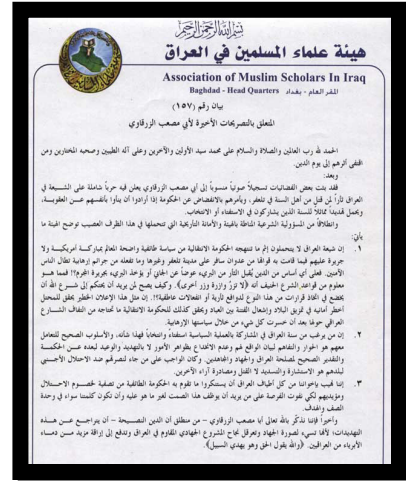 بسم الله الرحمن الرحيم
هيئة علماء المسلمين في العراق
Association of Muslim Scholars In Iraq
Baghdad - Head Quarters المقر العام - بغداد
بيان رقم (١٥٧)
المتعلق بالتصريحات الأخيرة لأبي مصعب الزرقاوي
الحمد لله رب العالمين والصلاة والسلام على محمد سيد الأولين والآخرين وعلى آله الطيبين وصحبه المختارين ومن
اقتفى أثرهم إلى يوم الدين.
وبعد:
فقد بثت بعض الفضائيات تسجيلاً صوتياً منسوباً إلى أبي مصعب الزرقاوي يعلن فيه حرباً شاملة على الشيعة في
العراق ثأراً لمن قتل من أهل السنة في تلعفر، ويأمرهم بالانفضاض عن الحكومة إذا أرادوا أن ينأوا بأنفسهم عن العقوبة،
ويحمل تهديداً مماثلاً للسنة الذين يشاركون في الاستفتاء أو الانتخاب.
وانطلاقاً من المسؤولية الشرعية المناطة بالهيئة والأمانة التأريخية التي تتحملها في هذا الظرف العصيب توضح الهيئة ما
يأتي:
١. إن شيعة العراق لا يتحملون إثم ما تنتهجه الحكومة الانتقالية من سياسة طائفية واضحة المعالم بمباركة أمريكية ولا
جريرة عليهم فيما قامت به قواتها من عدوان سافر على مدينة تلعفر وغيرها وما تفعله من جرائم إرهابية تطال الناس
الآمنين. فعلى أي أساس من الدين يُقبل الثأر من البريء عوضاً عن الجاني أو يؤخذ البريء بجريرة المجرم؟! فمما هو
معلوم من قواعد الشرع الحنيف أنه (لا تزرُ وازرة وزر أخرى). وكيف يصح لمن يريد أن يحتكم إلى شرع الله أن
يخضع في اتخاذ قرارات من هذا النوع لدوافع ثأرية أو انفعالات عاطفية؟!. إن مثل هذا الإعلان الخطير يحقق للمحتل
أخطر أمانيه في تمزيق البلاد وإشعال الفتنة بين العباد ويحقق كذلك للحكومة الانتقالية ما تحتاجه من التفاف الشارع
العراقي حولها بعد أن خسرت كل شيء من خلال سياستها الإرهابية.
٢. إن من يرغب من سنة العراق في المشاركة بالعملية السياسية استفتاءً وانتخاباً فهذا شأنه، والأسلوب الصحيح للتعامل
معهم هو الحوار والتفاهم لبيان الواقع لهم وعدم الانخداع بظواهر الأمور لا بالتهديد والوعيد لبعده عن الحكمة
والتقدير الصحيح لمصلحة العراق والجهاد والمجاهدين. وكان الواجب على من جاء لنصرتهم ضد الاحتلال الأجنبي
لبلدهم هو الاستشارة والتسديد لا القتل ومصادرة آراء الآخرين.
٣. إننا نهيب بإخواننا من كل أطياف العراق أن يستنكروا ما تقوم به الحكومة الطائفية من تصفية لخصوم الاحتلال
ومؤيديهم لكي نفوت الفرصة على من يريد أن يوظف هذا الصمت لغير ما هو عليه وأن تكون كلمتنا سواء في وحدة
الصف والهدف.
وأخيراً فإننا نذكّر بالله تعالى أبا مصعب الزرقاوي – من منطلق أن الدين النصيحة – أن يتراجع عن هذه
التهديدات؛ لأنها تسيء لصورة الجهاد وتعرقل نجاح المشروع الجهادي المقاوم في العراق وتدفع إلى إراقة مزيد من دماء
الأبرياء من العراقيين. (والله يقول الحق وهو يهدي السبيل).